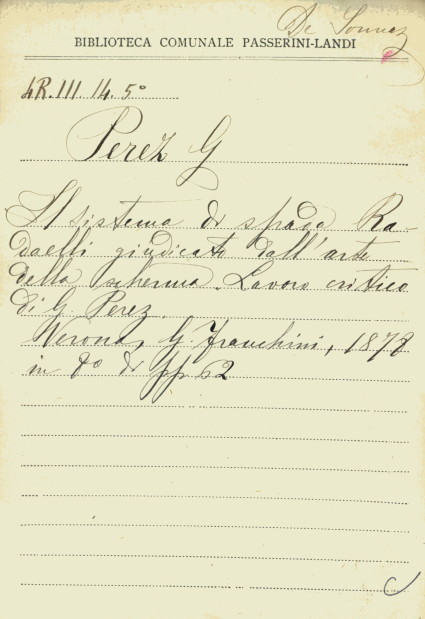 De
BIBLIOTECA COMUNALE PASSERINI-LANDI
4R.III.14.5°
Perez G
Il sistema di spada Ra-
daelli giudicato dall'arte
della scherma. Lavoro critico
di G. Perez.
Verona, G. Franchini, 1878
in 8° di pp 62
C